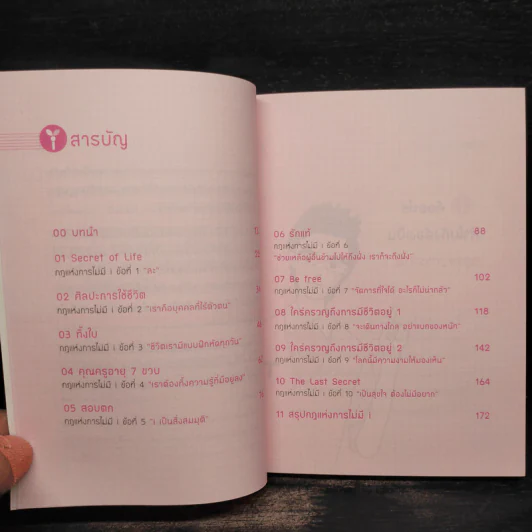 สารบัญ
00 บทนำ
01 Secret of Life
กฎแห่งการไม่มี i ข้อที่ 1 "ละ"
02 ศิลปะการใช้ชีวิต
กฎแห่งการไม่มี i ข้อที่ 2 "เราคือบุคคลที่ไร้ตัวตน"
03 ทั้งใบ
กฎแห่งการไม่มี i ข้อที่ 3 "ชีวิตเรามีแบบฝึกหัดทุกวัน"
04 คุณครูอายุ 7 ขวบ
กฎแห่งการไม่มี i ข้อที่ 4 "เราต้องทิ้งความรู้ที่มีอยู่ลง"
05 สอบตก
กฎแห่งการไม่มี i ข้อที่ 5 "i เป็นสิ่งสมมุติ"
06 รักแท้ 88
กฎแห่งการไม่มี i ข้อที่ 6
"ช่วยเหลือผู้อื่นข้ามไปให้ถึงฝั่ง เราก็จะถึงฝั่ง"
07 Be free 102
กฎแห่งการไม่มี i ข้อที่ 7 "จัดการที่ใจได้ อะไรก็ไม่น่ากลัว"
08 ใคร่ครวญถึงการมีชีวิตอยู่ 1 118
กฎแห่งการไม่มี i ข้อที่ 8 "จะเดินทางไกล อย่าแบกของหนัก"
09 ใคร่ครวญถึงการมีชีวิตอยู่ 2 142
กฎแห่งการไม่มี i ข้อที่ 9 "โลกนี้มีความงามให้มองเห็น"
10 The Last Secret 164
กฎแห่งการไม่มี i ข้อที่ 10 "เป็นสุขใจ ต้องไม่มีอยาก"
11 สรุปกฎแห่งการไม่มี i 172